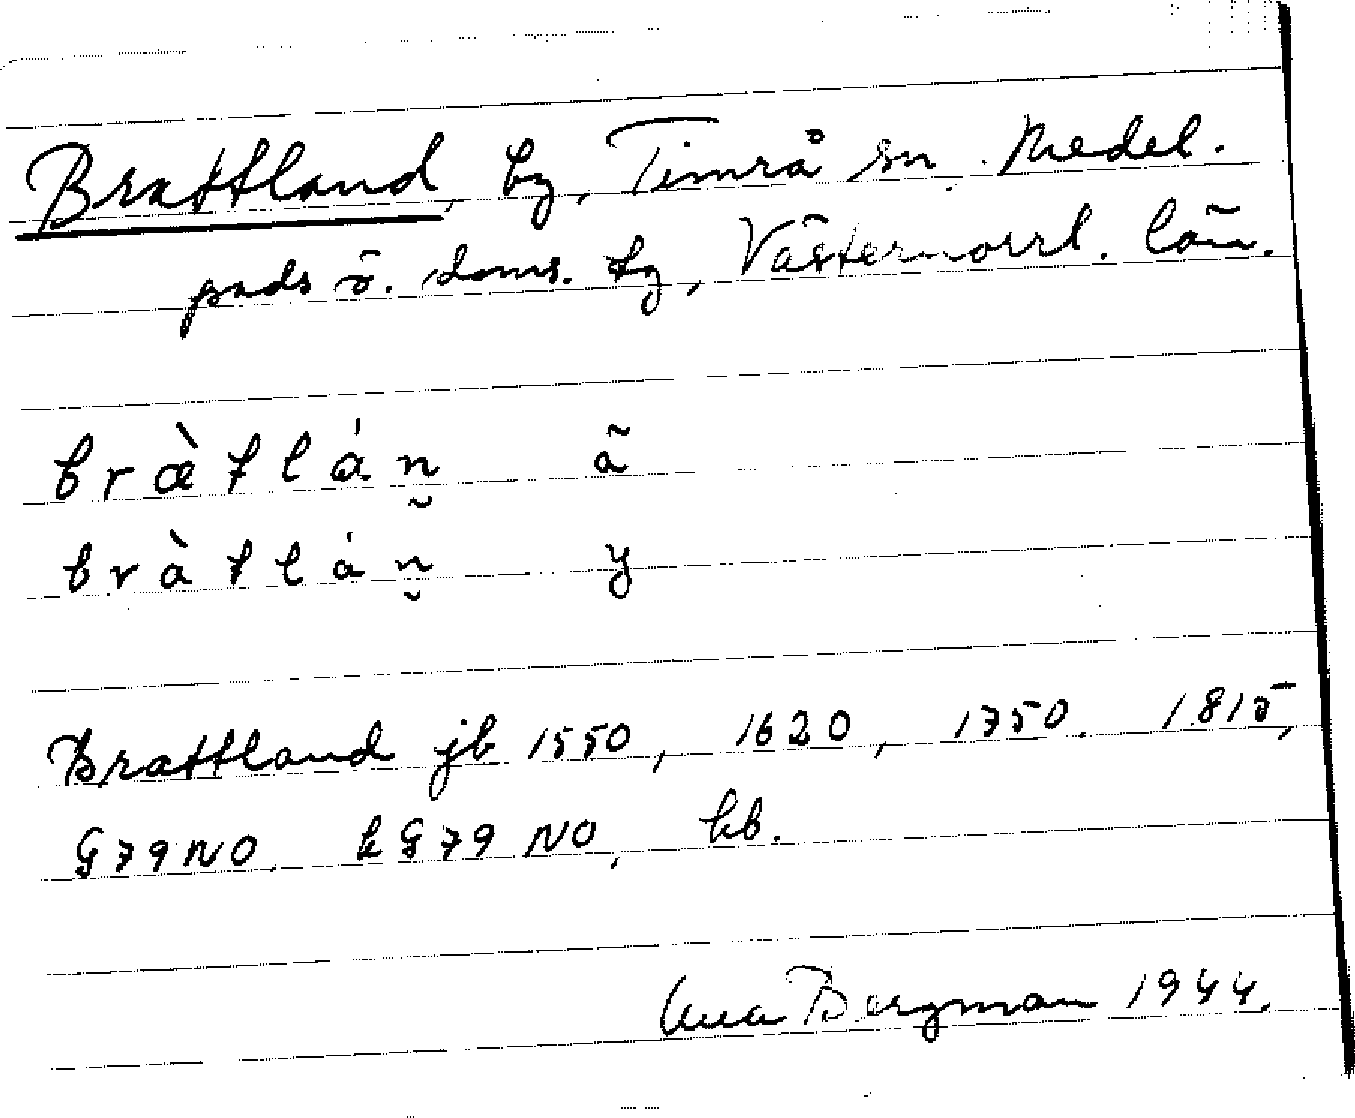 Brattland, by, Timrå sn. Medel.
pads ö. doms. by, Västernorrl. län.
bræ̀tlán̰ ä
bràtlán̰ y
Brattland jb 1550, 1620, 1750. 1815,
G79NO. kG79NO, kb.
Bergman 1944.